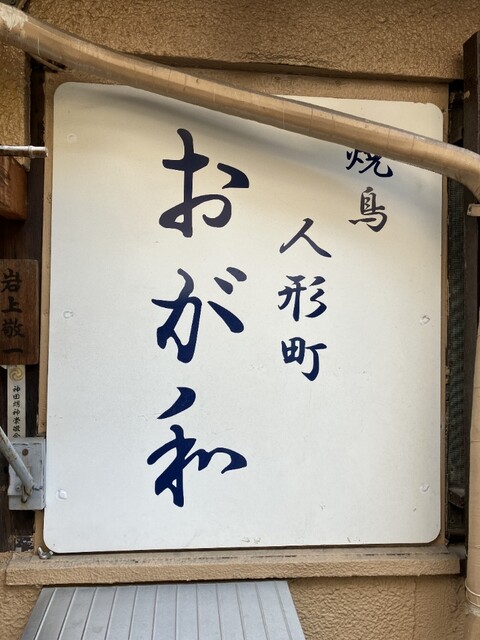 焼鳥
人形町
おが和
岩上敬一
神田明神崇敬会